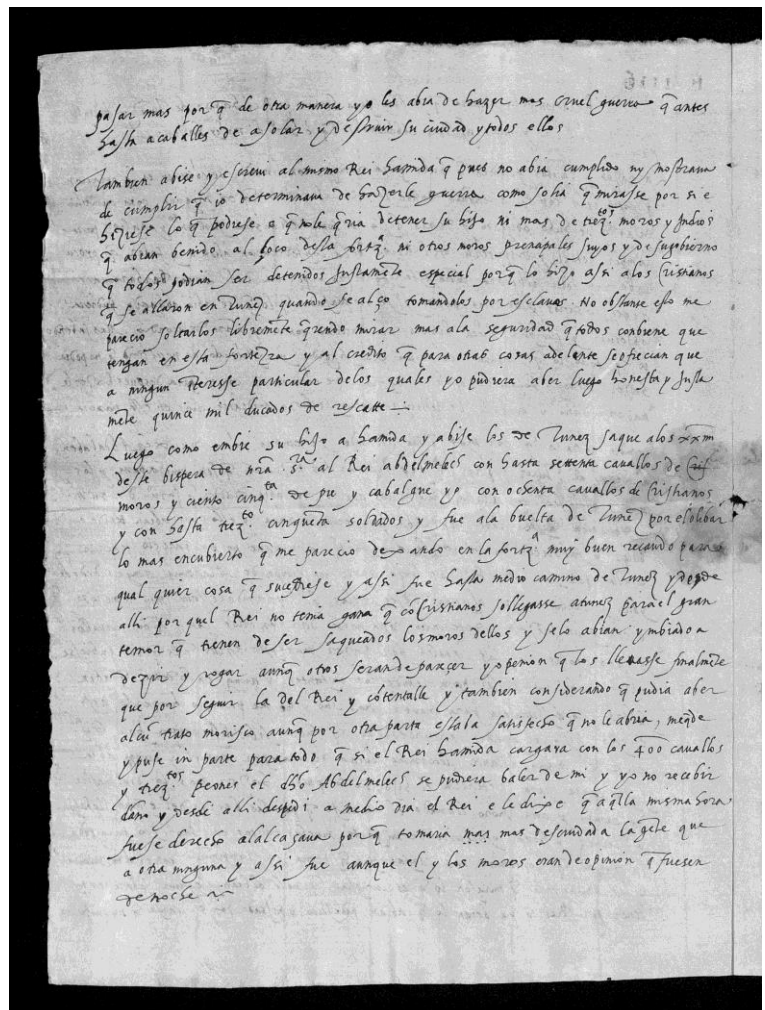 pasar mas por q̃ de otra manera yo les abia de hazer mas cruel guerra q̃ antes
hasta acaballes de asolar y destruir su ciudad y todos ellos
Tambien abise y escreui al mismo Rei hamida q̃ pues no abia cumplido ny mostraua
de cumplir q̃ io determinaua de hazerle guerra como solia q̃ mirasse por si e
hiziese lo q̃ pudiese e q̃ no le q̃ria detener su hijo ni mas de trezᵗᵒˢ moros y Judios
q̃ abian benido al çoco desta fortzᵃ ni otros moros prencipales suyos y de su gobierno
q̃ todos podian ser detenidos Justamẽte especial porq̃ lo hizo assi a los Cristianos
q̃ se allaron en Tunez quando se alço tomandolos por esclauos. No obstante esto me
parecio soltarlos libremẽte q̃rendo mirar mas ala seguridad q̃ todos combiene que
tengan en esta forteza y al credito q̃ para otras cosas adelente se ofreccian que
a ningun ỹteresse particular de los quales yo pudiera aber luego honesta y Justa
mẽte quince mil ducados de rescatte
Luego como embie su hijo a hamida y abise los de Tunez saque a los xxiii
deste bispera de nr̃a sʳᵃ al Rei abdelmelech con hasta settenta cauallos de
moros y ciento cinqᵗᵃ de pie y cabalgue yo con ochenta cauallos de Cristianos
y con hasta trezᵗᵒˢ cinquẽta soldados y fue ala buelta de Tunez por el olibar
lo mas encubierto q̃ me parecio dexando en la fortzᵃ muy buen recaudo para
qual quier cosa q̃ sucediese y assi fue hasta medio camino de Tunez y desde
alli por quel Rei no tenia gana q̃ cõ Cristianos sollegasse a tunez para el gran
temor q̃ tienen de ser saqueados los moros dellos y selo abian ymbiado a
dezir y rogar aunq̃ otros seran de parecer y openion q̃ los lleuasse finalmẽte
que por seguir la del Rei y cõtentalle y tambien considerando q̃ pudia aber
alcũ trato morisco aunq̃ por otra parte estaba satisfecho q̃ no le abria, meq̃de
y puse in parte para todo q̃ si el Rei hamida cargaua con los 400 cauallos
y trezᵗᵒˢ peones el dh̃o Abdelmelech se pudiera baler de mi y yo no recebir
daño y desde alli despedi a medio dia el Rei e le dixe q̃ aq̃lla misma hora
fuese derecho alalcaçaua porq̃ tomaria mas mas descuidada la gẽte que
a otra ninguna y assi fue aunque el y los moros eran de opinion q̃ fuesen
de noche